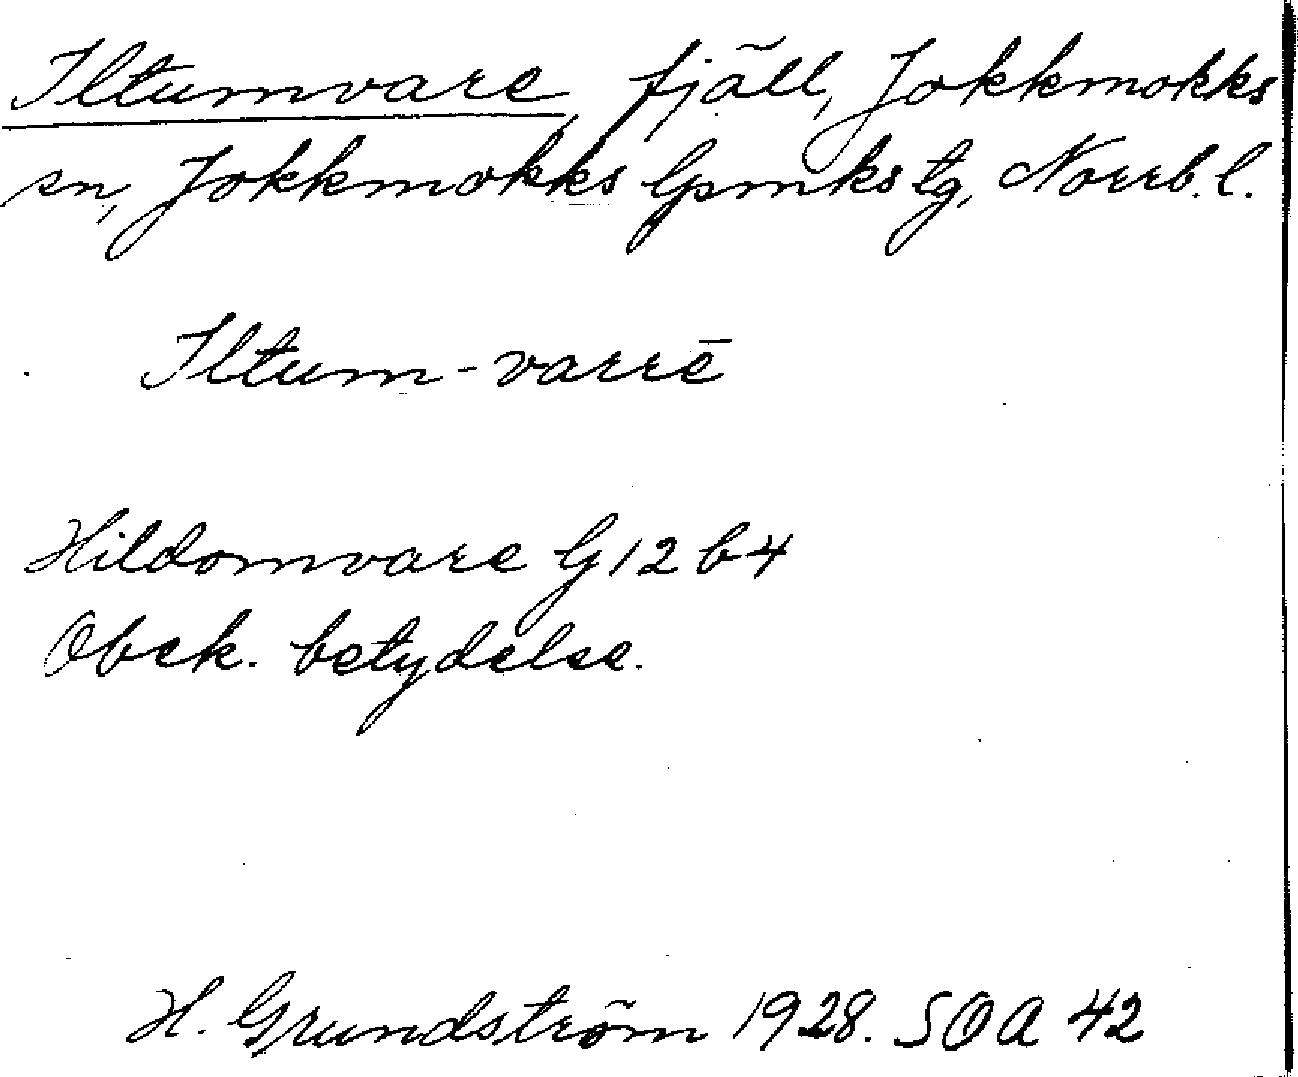 Iltumvare, fjäll, Jokkmokks
sn, Jokkmokks lpmks tg, Norrb. l.
Iltum-varrē
Hildomvare G 12 b 4
Obek. betydelse.
H. Grundström 1928. SOA 42